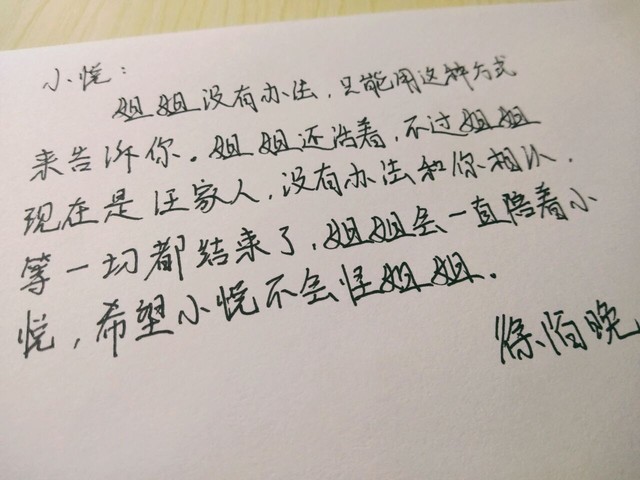 小悦：
姐姐没有办法，只能用这种方式
来告诉你。姐姐还活着，不过姐姐
现在是汪家人，没有办法和你相认.
等一切都结束了，姐姐会一直陪着小
悦，希望小悦不会怪姐姐.
徐陌晚